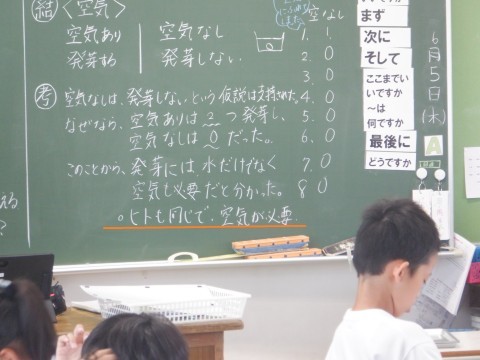 結 〈空気〉
空気あり 空気なし
発芽する 発芽しない
考 空気なしは、発芽しないという仮説は支持された。
なぜなら、空気ありは2つ発芽し、
空気なしは0だった。
このことから、発芽には、水だけでなく
空気も必要だと分かった。
。ヒトも同じで、空気が必要。
空なし
1. 1
2. 0
3. 0
4. 0
5. 0
6. 0
7. 0
8 0
まず
次に
そして
ここまでい
いですか
~は
何ですか
最後に
どうですか
6月5日(木)
A
える
?